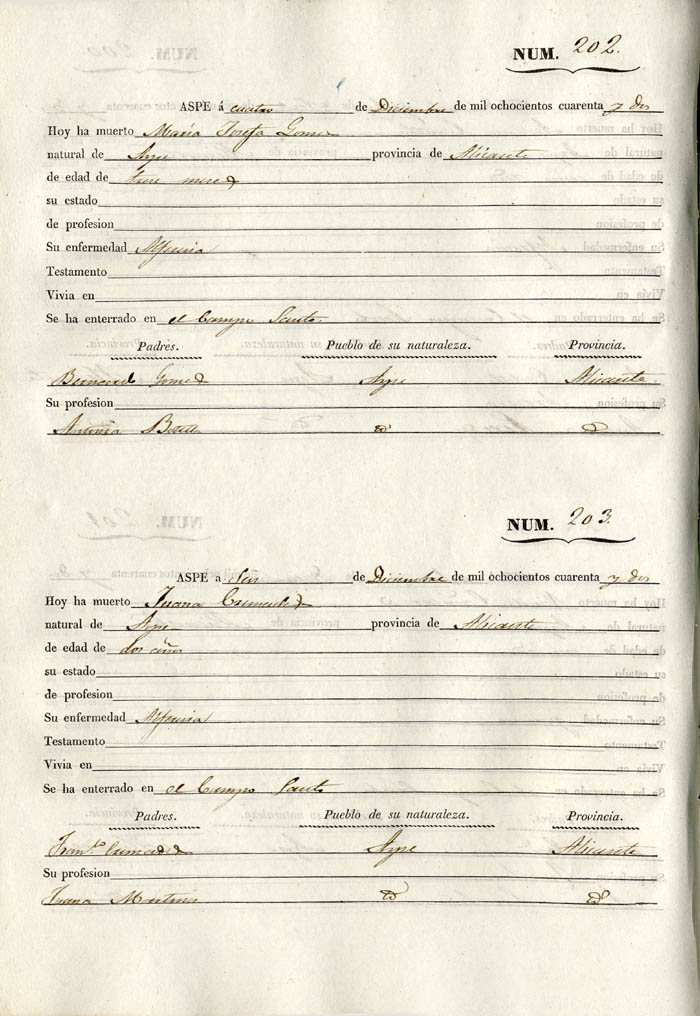 NUM. 202.
ASPE á cuatro de Diciembre de mil ochocientos cuarenta y dos
Hoy ha muerto Maria Josefa Gomez
natural de Aspe provincia de Alicante
de edad de meses
su estado
de profesion
Su enfermedad Alferecia
Testamento
Vivia en
Se ha enterrado en el Campo Santo
Padres. Pueblo de su naturaleza. Provincia.
Bernardo Gomez Aspe Alicante
Su profesion
Antonia Botella id id
NUM. 203.
ASPE a Seis de Diciembre de mil ochocientos cuarenta y dos
Hoy ha muerto Juana
natural de Aspe provincia de Alicante
de edad de dos años
su estado
de profesion
Su enfermedad Alferecia
Testamento
Vivia en
Se ha enterrado en el Campo Santo
Padres. Pueblo de su naturaleza. Provincia.
Franco. Aspe Alicante
Su profesion
Juana Martinez id id